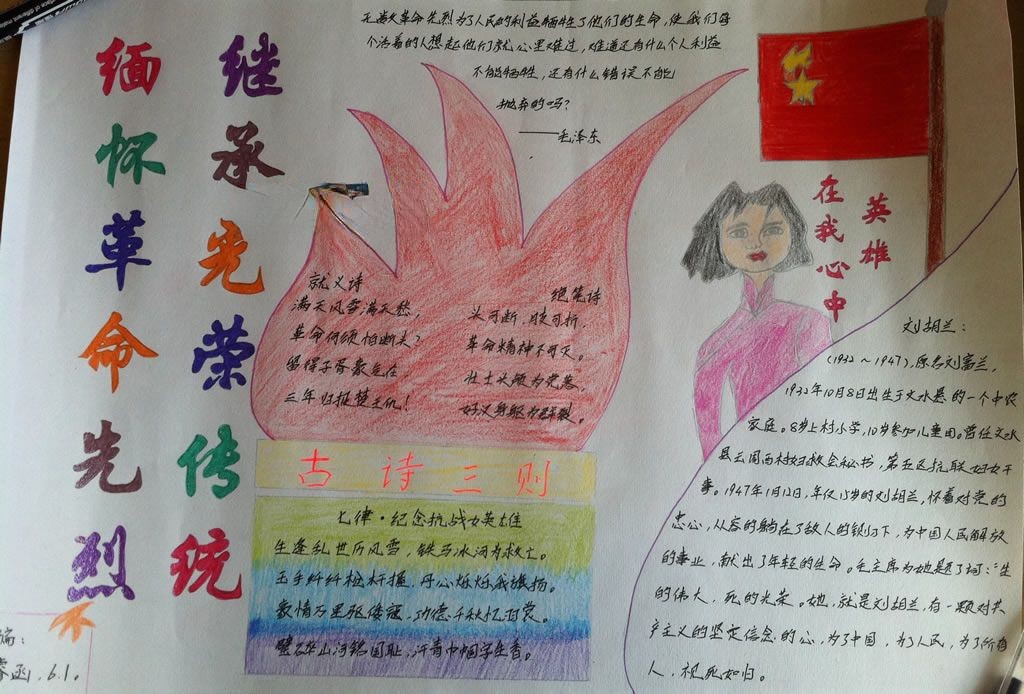 缅怀革命先烈
继承光荣传统
无数革命先烈为了人民的利益牺牲了他们的生命,使我们每
个活着的人想起他们就心里难过,难道还有什么个人利益
不能牺牲,还有什么错误不能
抛弃的吗?
——毛泽东
就义诗
满天风雪满天愁,
革命何须怕断头?
留得子胥豪气在,
三年归报楚王仇!
绝笔诗
头可断,肢可折,
革命精神不可灭。
壮士头颅为党落,
好汉身躯为群裂。
古诗三则
七律·纪念抗战女英雄
生逢乱世历风雪,铁马冰河为救亡。
玉手纤纤枪杆握,丹心烁烁战旗扬。
豪情万里驱倭寇,功德千秋忆
山河铭国耻,汗青巾帼字生香。
英雄
在我心中
刘胡兰:
(1932~1947),原名刘富兰,
1932年10月8日出生于文水县的一个中农
家庭。8岁上村小学,10岁参加儿童团。曾任文水
县云周西村妇救会秘书,第五区抗联妇女干
事。1947年1月12日,年仅15岁的刘胡兰,怀着对党的
忠心,从容的躺在了敌人的铡刀下,为中国人民解放
的事业,献出了年轻的生命。毛主席为她题了词:“生
的伟大,死的光荣。她,就是刘胡兰,有一颗对共
产主义的坚定信念的心,为了中国,为了人民,为了所有
人,视死如归。
编:
函,6.1。